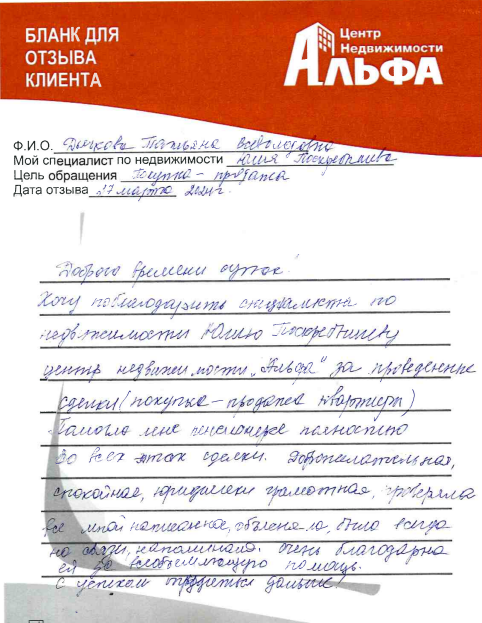 БЛАНК ДЛЯ
ОТЗЫВА
КЛИЕНТА
Центр
Недвижимости
АЛЬФА
Ф.И.О. Татьяна Всеволодовна
Мой специалист по недвижимости Юлия
Цель обращения Покупка - продажа
Дата отзыва 27 марта 2024 г.
Доброго времени суток!
Хочу поблагодарить специалиста по
недвижимости Юлию Поскребышеву
центр недвижимости "Альфа" за проведение
сделки (покупка - продажа квартиры)
Помогла мне пенсионерке полностью
во всех этап сделки. Доброжелательная,
спокойная, юридически грамотная, проверяла
все мной написанное, объясняла, была всегда
на связи, напоминала. очень благодарна
ей за всеобъемлющую помощь.
С успехом трудиться дальше.